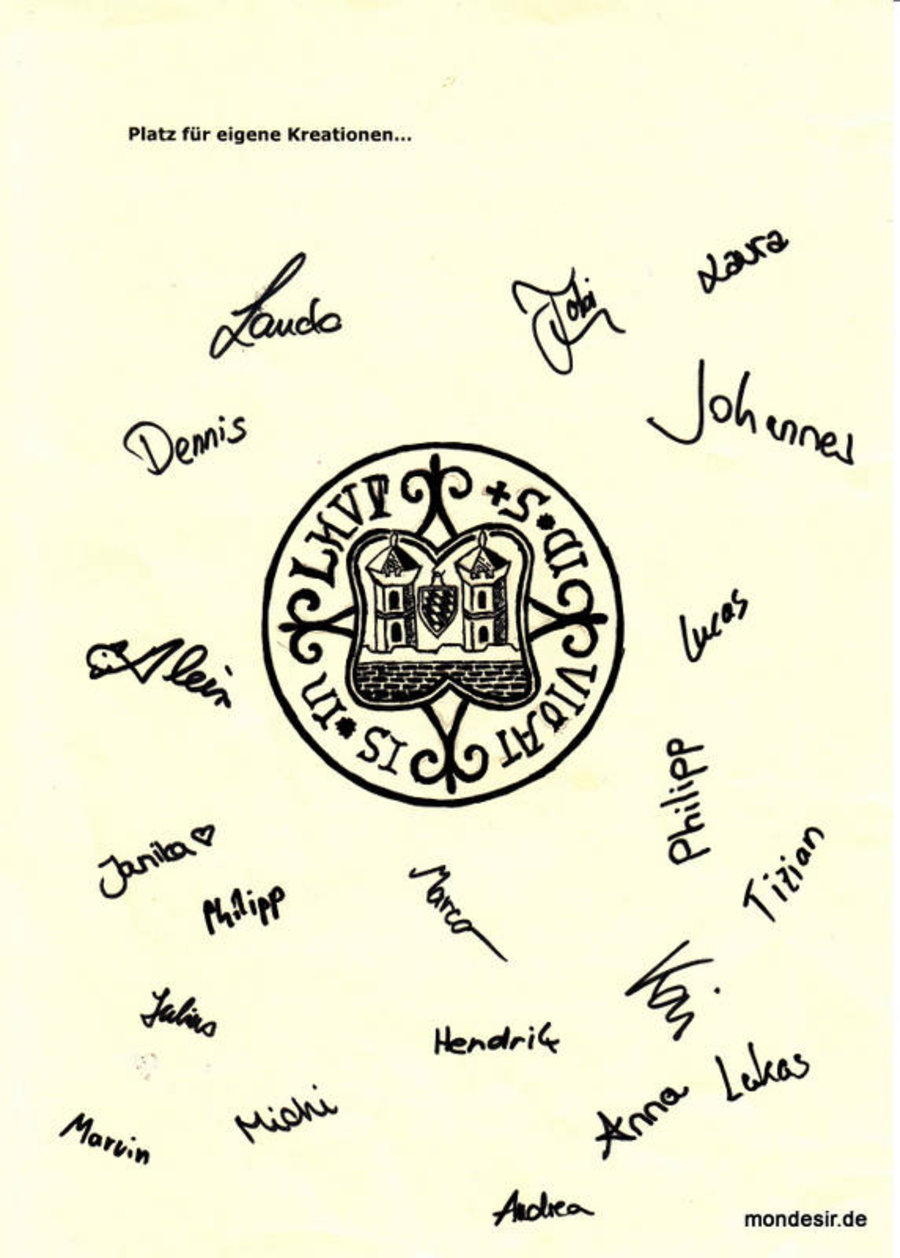 Platz für eigene Kreationen...
Laura
Tobi
Landa
Johannes
Dennis
+ S
LMVT
IS * IN
VIDAT
Lucas
Alein
Philipp
Tizian
Janika ♡
Philipp
Marco
Julius
Hendrik
Lukas
Anna
Michi
Marvin
Andrea
mondesir.de